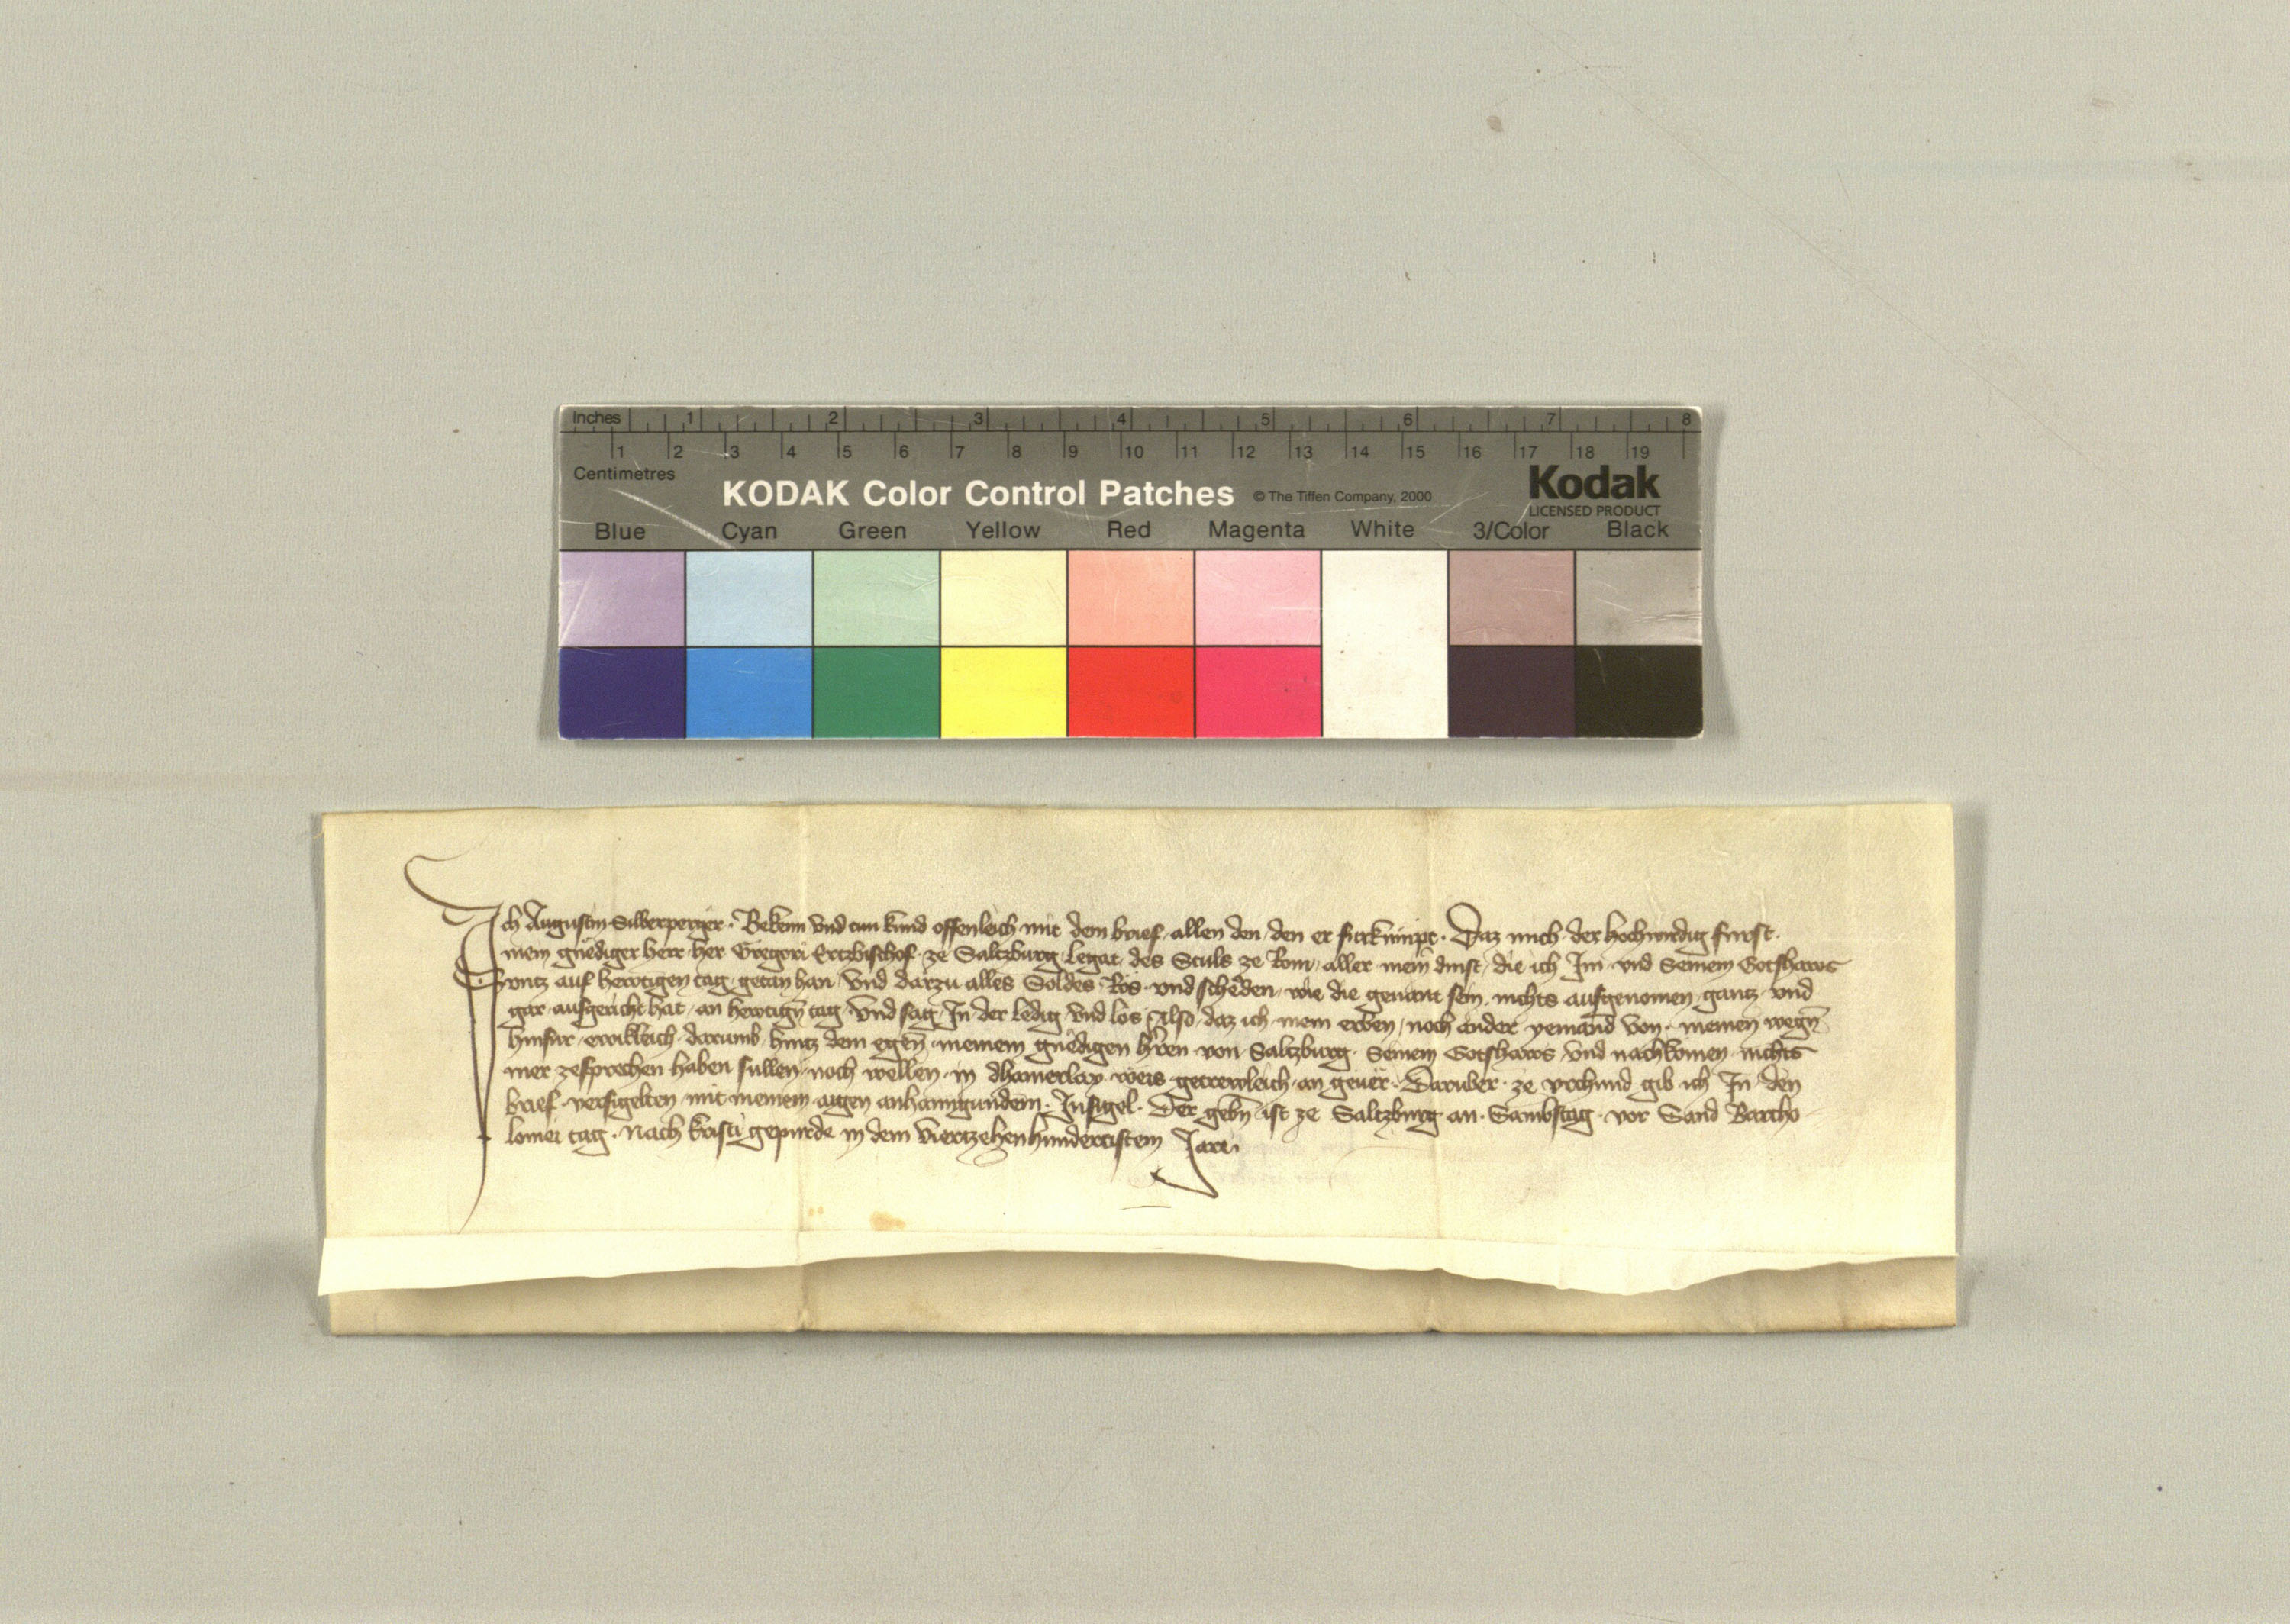 Inches 1 2 3 4 5 6 7 8
1 2 3 4 5 6 7 8 9 10 11 12 13 14 15 16 17 18 19
Centimetres
KODAK Color Control Patches © The Tiffen Company, 2000 Kodak
LICENSED PRODUCT
Blue Cyan Green Yellow Red Magenta White 3/Color Black
Ich Augustin Silberperger. Bekenn vnd tun kund offenleich mit dem brief allen den, den er furkumpt. Daz mich der hochwirdig furst.
mein gnediger herr her Gregori Ertzbischof ze Saltzburg, Legat des Stuls ze Rom, aller mein dinst, die ich Im vnd Seinem Gotshaws
vntz auf hewtigen tag getan han, vnd darzu alles Soldes Ros vnd scheden, wie die genant sein, nichts ausgenomen, gantz vnd
gar ausgericht hat, an hewtign tag, vnd sag In der ledig vnd los, Also, daz ich mein erben, noch ander yemand von meinen wegn
hinfur ewikleich darumb hintz dem egen meinem gnedigen hren von Saltzburg. Seinem Gotshaws vnd nachkomen nichts
mer zesprechen haben sullen, noch wellen in dhainerlay weis getrewleich an geuer. Daruber ze vrchund gib ich In den
brief versigelten mit meinem aigen anhanngundem. Insigel. Der gebn ist ze Saltzburg an Sambstag vor Sand Bartho
lomei tag. Nach kristi gepurde in dem Viertzehenhundertistem Jare.